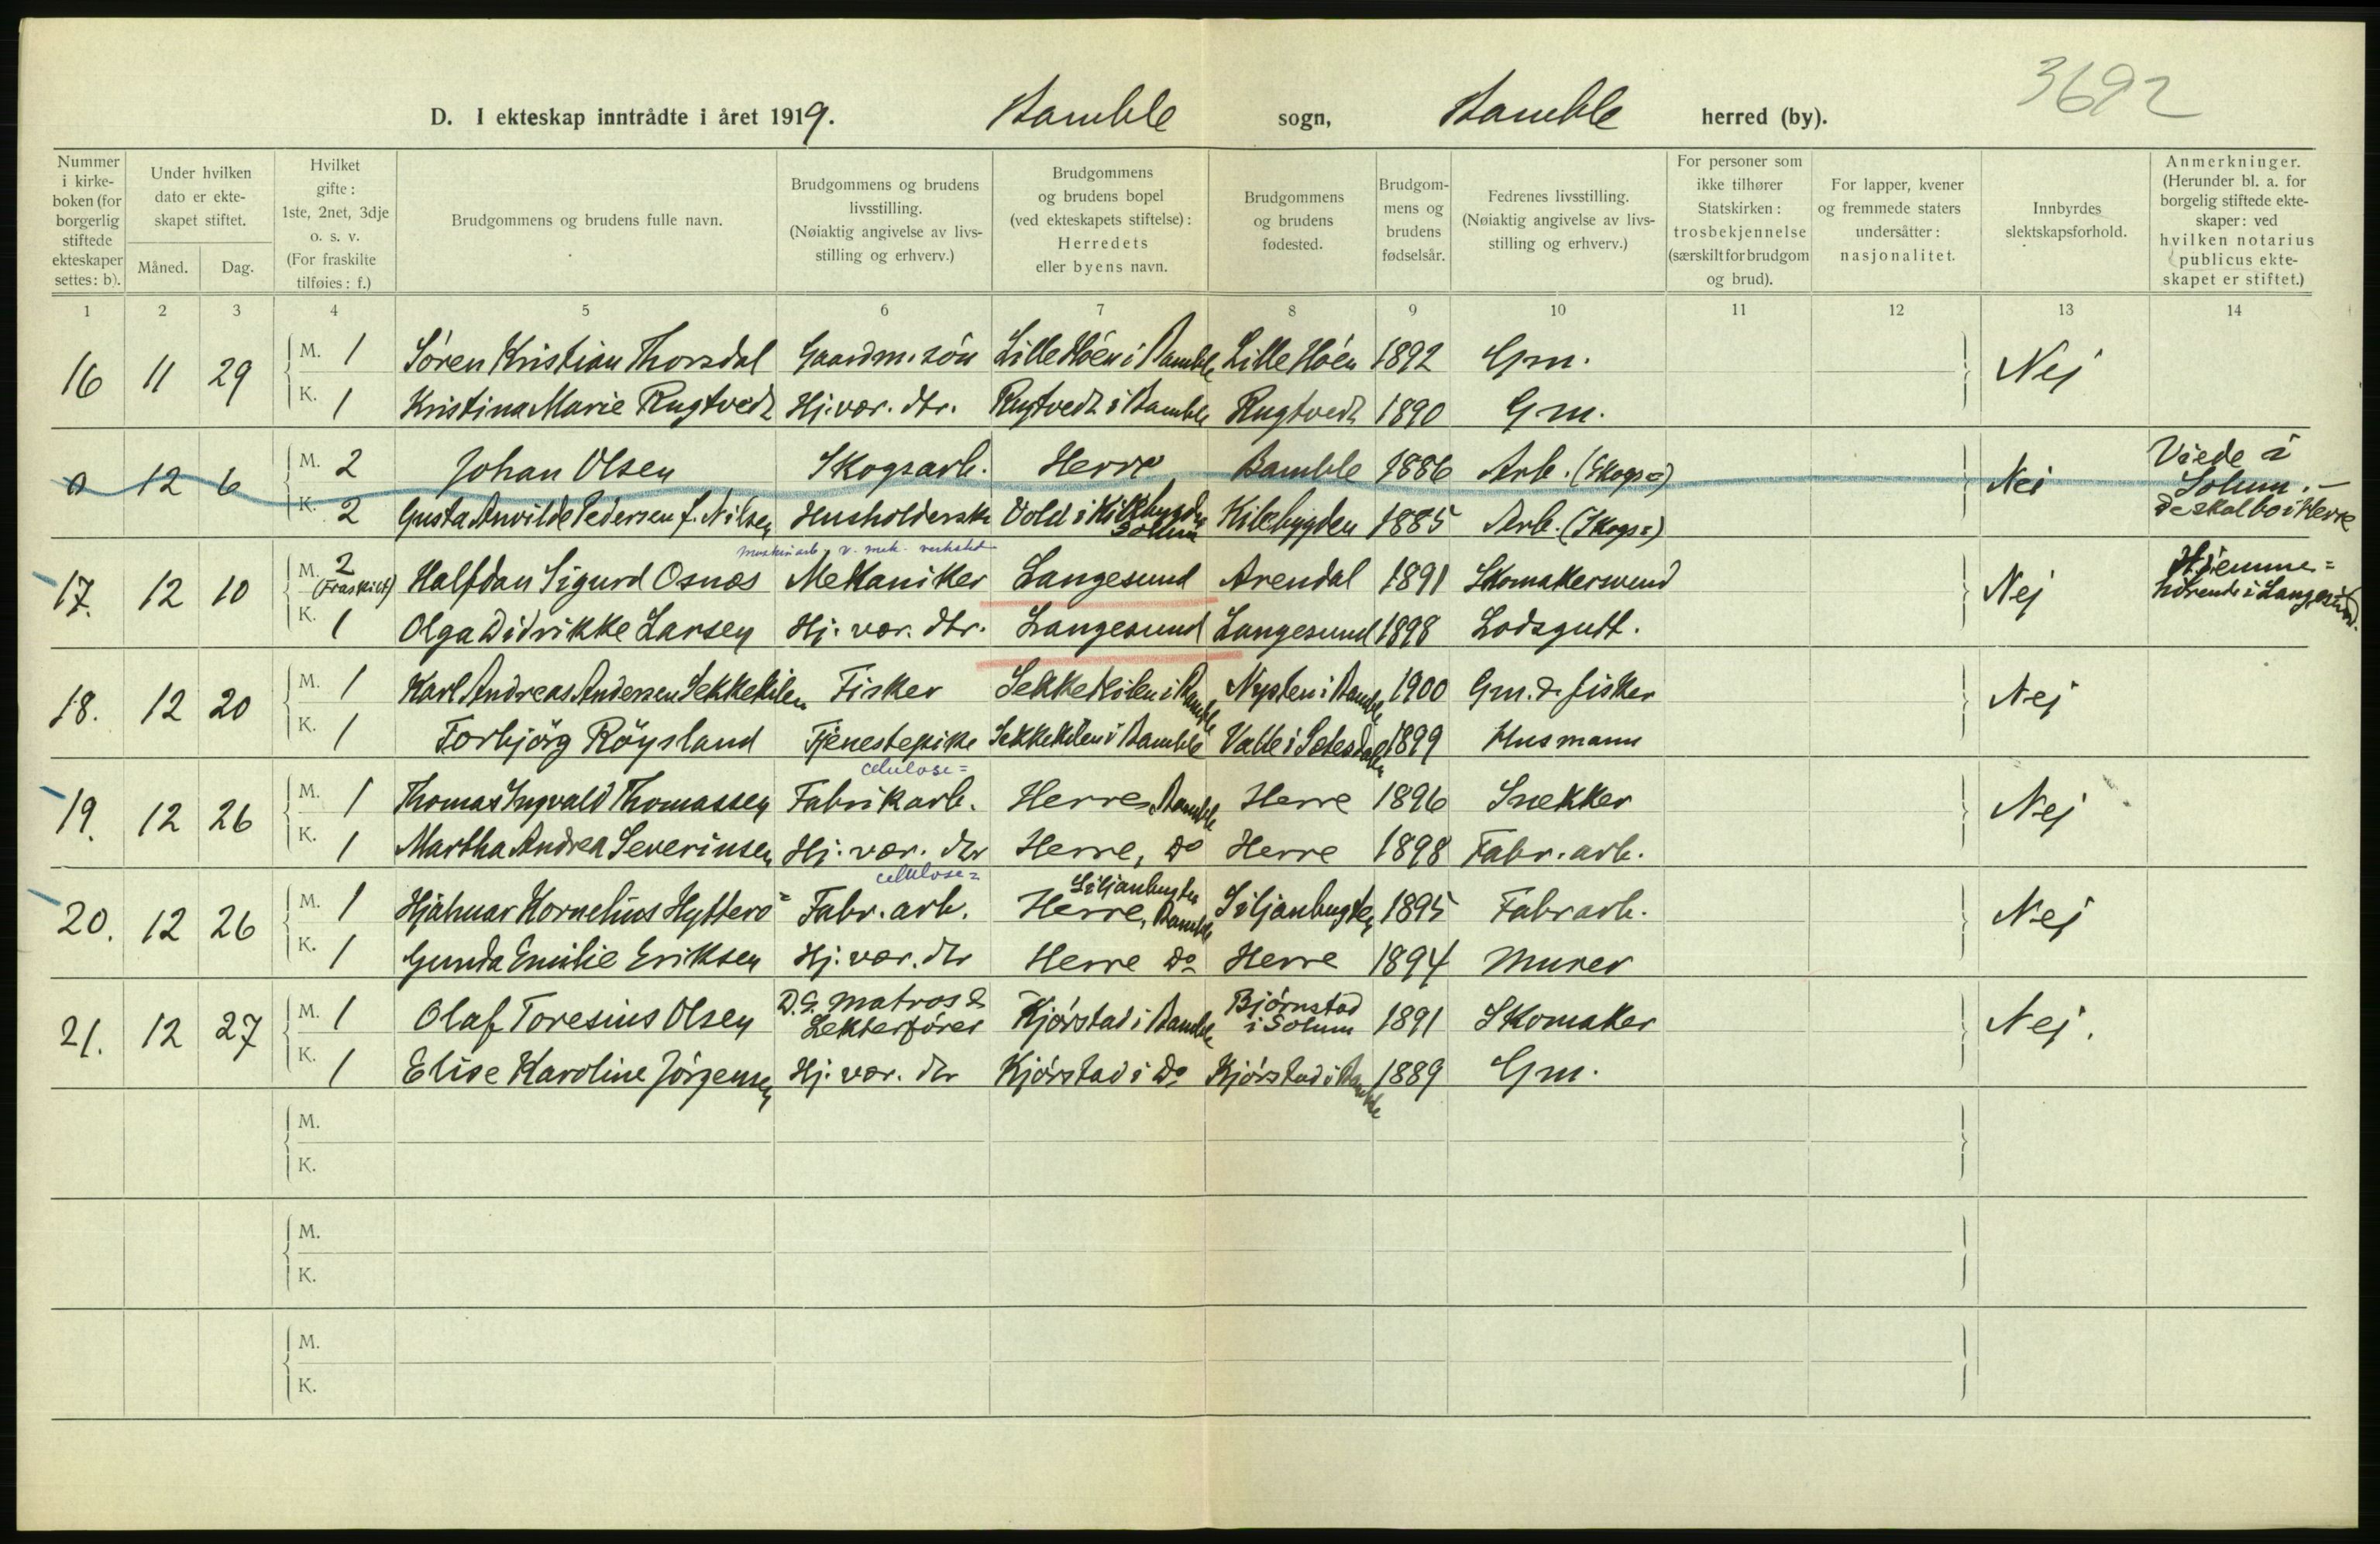 3692
D. I ekteskap inntrådte i året 1919. Bamble sogn, Bamble herred (by).
Nummer i kirke-boken (for borgerlig stiftede ekteskaper settes: b).
Under hvilken dato er ekte-skapet stiftet.
Måned. Dag.
Hvilket gifte: 1ste, 2net, 3dje o. s. v. (For fraskilte tilføies: f.)
Brudgommens og brudens fulle navn.
Brudgommens og brudens livsstilling. (Nøiaktig angivelse av livs-stilling og erhverv.)
Brudgommens og brudens bopel (ved ekteskapets stiftelse): Herredets eller byens navn.
Brudgommens og brudens fødested.
Brudgom-mens og brudens fødselsår.
Fedrenes livsstilling. (Nøiaktig angivelse av livs-stilling og erhverv.)
For personer som ikke tilhører Statskirken: trosbekjennelse (særskilt for brudgom og brud).
For lapper, kvener og fremmede staters undersåtter: nasjonalitet.
Innbyrdes slektskapsforhold.
Anmerkninger. (Herunder bl. a. for borgelig stiftede ekte-skaper: ved hvilken notarius publicus ekte-skapet er stiftet.)
1 2 3 4 5 6 7 8 9 10 11 12 13 14
16 11 29 M. 1 Søren Kristian Thorsdal Gaardm. søn Lille Høen i Bamble Lille Høen 1892 Gm. Nej
K. 1 Kristina Marie Rugtvedt Hj. vær. dtr. Rugtvedt i Bamble Rugtvedt 1890 Gm.
0 12 6 M. 2 Johan Olsen Skogsarb. Herre Bamble 1886 Arb. (Skogs=) Nei Viede i Solum.-
K. 2 Gusta Anvilde Pedersen f. Nilsen Husholderske Vold i Kilebygden Solum Kilebygden 1885 Arb. (Skogs=) De skal bo i Herre
maskinarb. v. mek. verksted
17. 12 10 M. 2 (Fraskilt) Halfdan Sigurd Osnæs Mekaniker Langesund Arendal 1891 Skomakersvend Nej Hjemme=hørende i Langesund.
K. 1 Olga Didrikke Larsen Hj. vær. dtr. Langesund Langesund 1898 Lodsgutt.
18. 12 20 M. 1 Karl Andreas Andersen Sekkekilen Fisker Sekkekilen i Bamble Nysten i Bamble 1900 Gm. & fisker Nej
K. 1 Torbjörg Röysland Tjenestepike Sekkekilen i Bamble Valle i Setesdalen 1899 Husmann
celulose=
19. 12 26 M. 1 Thomas Ingvald Thomassen Fabrikarb. Herre, Bamble Herre 1896 Snekker Nej
K. 1 Martha Andrea Severinsen Hj. vær. dtr Herre, Do Herre 1898 Fabr. arb.
celulose= Siljanbugten
20. 12 26 M. 1 Hjalmar Kornelius Hytterø= Fabr. arb. Herre, Bamble Siljanbugten 1895 Fabr arb. Nej
K. 1 Gunda Emilie Eriksen Hj. vær. dtr Herre Do Herre 1894 Murer
21. 12 27 M. 1 Olaf Toresius Olsen D. S. Matros & Lekterfører Kjørstad i Bamble Bjørnstad i Solum 1891 Skomaker Nej.
K. 1 Elise Karoline Jörgensen Hj. vær. dtr Kjørstad i Do Kjørstad i Bamble 1889 Gm.
M.
K.
M.
K.
M.
K.